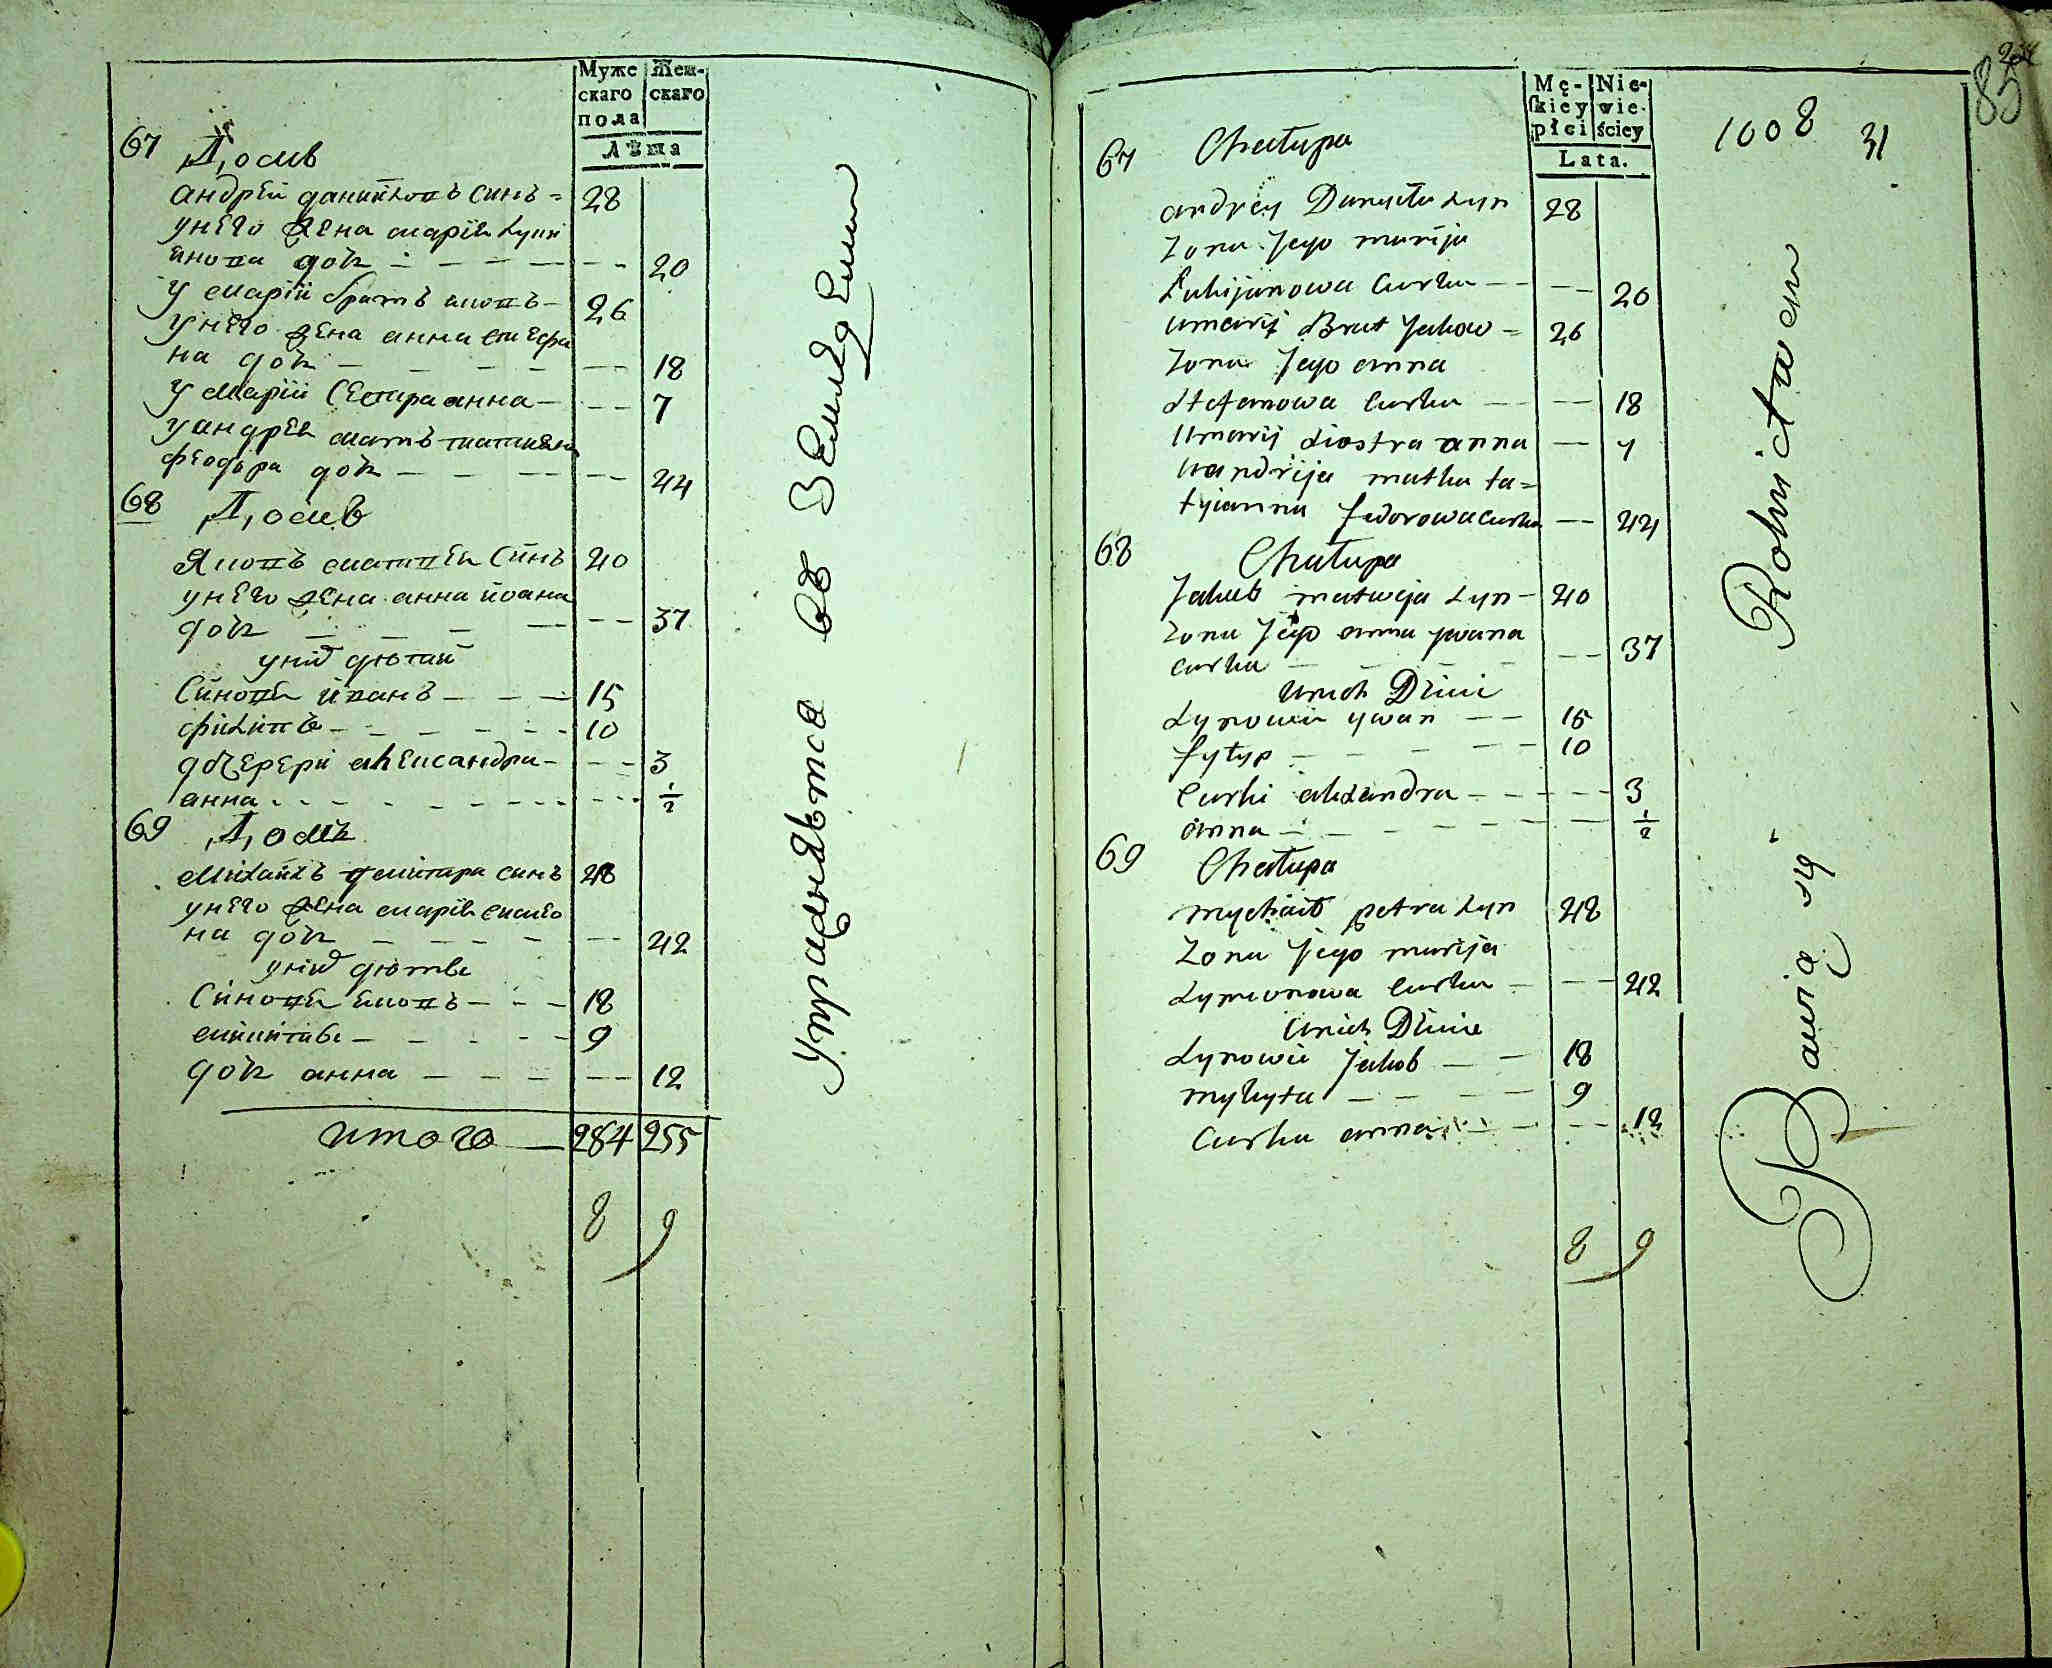 Муже
скаго
пола
Жен-
скаго
Лѣта
67 Домъ
андрѣй данилловъ синъ = 28
унего жена марія Луки
янова доч - - - - 20
У марій братъ яковъ - 26
унего жена анна стефа
на доч - - - - 18
У марій Сестра анна - - - 7
уандрея мать татияна
феодора доч - - - - 44
68 Домъ
Яковъ матвея Синъ 40
унего жена анна ивана
доч - - - - 37
униx дютий
Синове иванъ - - - 15
филипъ - - - - 10
дочери александра - - - 3
анна - - - - 1/2
69 Домъ
Михаилъ петра синъ 48
унего жена марія симео
на доч - - - - 42
униx дютве
Синове яковъ - - - 18
микита - - - - 9
доч анна - - - - 12
итого - 284 255
8 9
Упражняются въ Земледелии
Mę-
skiey
płci
Nie-
wie-
ściey
Lata.
85
1008 31
67 Chałupa
andrey Danyła syn 28
Zona Jego marija
Łukijanowa curka - - - - 20
umarij Brat Jakow = 26
Zona Jego anna
Stefanowa curka - - - - 18
Umarij siostra anna - 7
uandrija matka ta=
tyianna fedorowa curka - - 44
68 Chałupa
Jakub matwija syn - 40
Zona Jego anna ywana
curka - - - - 37
Unich Dzieci
Synowie ywan - - 15
fyłyp - - - - 10
Curki alexandra - - - - 3
anna - - - - 1/2
69 Chałupa
mychaiło petra syn 48
Zona Jego marija
Symeonowa curka - - - 42
Unich Dzieci
Synowie Jakob - - 18
mykyta - - - - 9
Curka anna - - - - 12
8 9
Bawią się Rolnictwem